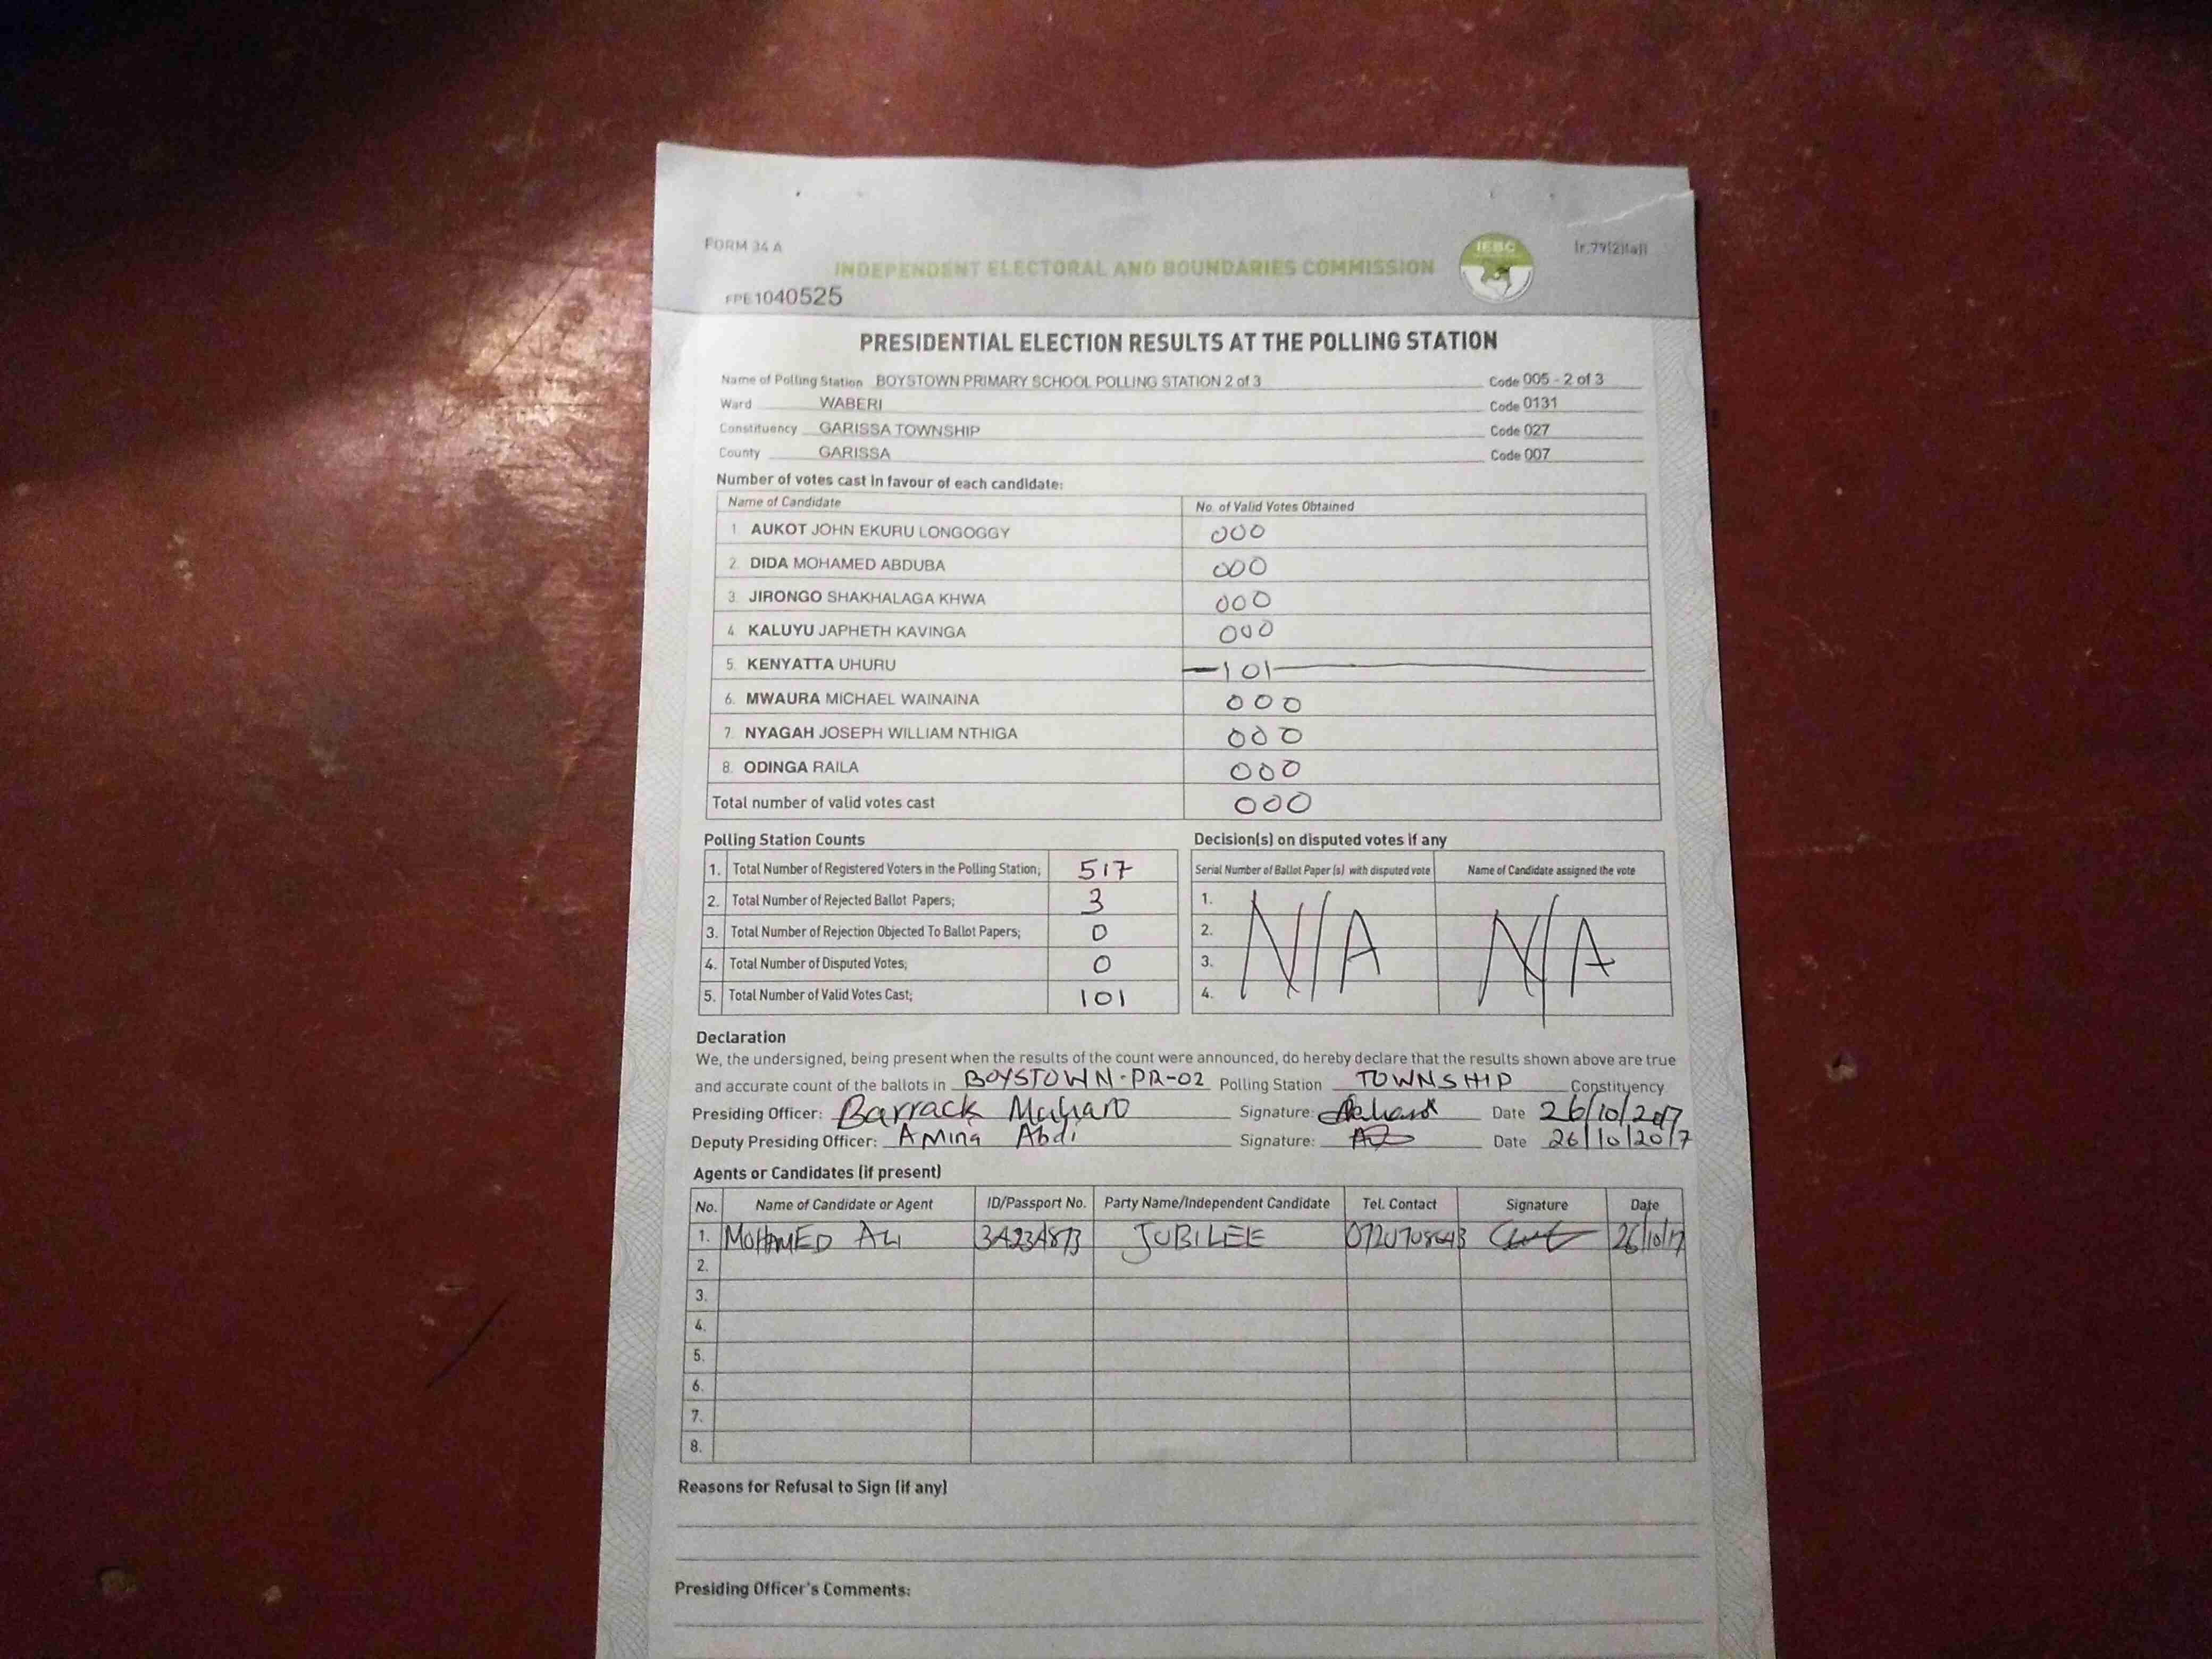 FORM 34 A
(r.79(2)(a))
INDEPENDENT ELECTORAL AND BOUNDARIES COMMISSION
IEBC
FPE1040525
PRESIDENTIAL ELECTION RESULTS AT THE POLLING STATION
Name of Polling Station BOYSTOWN PRIMARY SCHOOL POLLING STATION 2 of 3 Code 005 - 2 of 3
Ward WABERI Code 0131
Constituency GARISSA TOWNSHIP Code 027
County GARISSA Code 007
Number of votes cast in favour of each candidate:
Name of Candidate No. of Valid Votes Obtained
1. AUKOT JOHN EKURU LONGOGGY 000
2. DIDA MOHAMED ABDUBA 000
3. JIRONGO SHAKHALAGA KHWA 000
4. KALUYU JAPHETH KAVINGA 000
5. KENYATTA UHURU 101
6. MWAURA MICHAEL WAINAINA 000
7. NYAGAH JOSEPH WILLIAM NTHIGA 000
8. ODINGA RAILA 000
Total number of valid votes cast 000
Polling Station Counts
1. Total Number of Registered Voters in the Polling Station; 517
2. Total Number of Rejected Ballot Papers; 3
3. Total Number of Rejection Objected To Ballot Papers; 0
4. Total Number of Disputed Votes; 0
5. Total Number of Valid Votes Cast; 101
Decision(s) on disputed votes if any
Serial Number of Ballot Paper (s) with disputed vote Name of Candidate assigned the vote
1.
2.
3.
4.
N/A N/A
Declaration
We, the undersigned, being present when the results of the count were announced, do hereby declare that the results shown above are true
and accurate count of the ballots in BOYSTOWN-PR-02 Polling Station TOWNSHIP Constituency
Presiding Officer: Barrack Signature: Date 26/10/2017
Deputy Presiding Officer: Amina Abdi Signature: Date 26/10/2017
Agents or Candidates (if present)
No. Name of Candidate or Agent ID/Passport No. Party Name/Independent Candidate Tel. Contact Signature Date
1. MOHAMED ALI JUBILEE 26/10/17
2.
3.
4.
5.
6.
7.
8.
Reasons for Refusal to Sign (if any)
Presiding Officer's Comments: